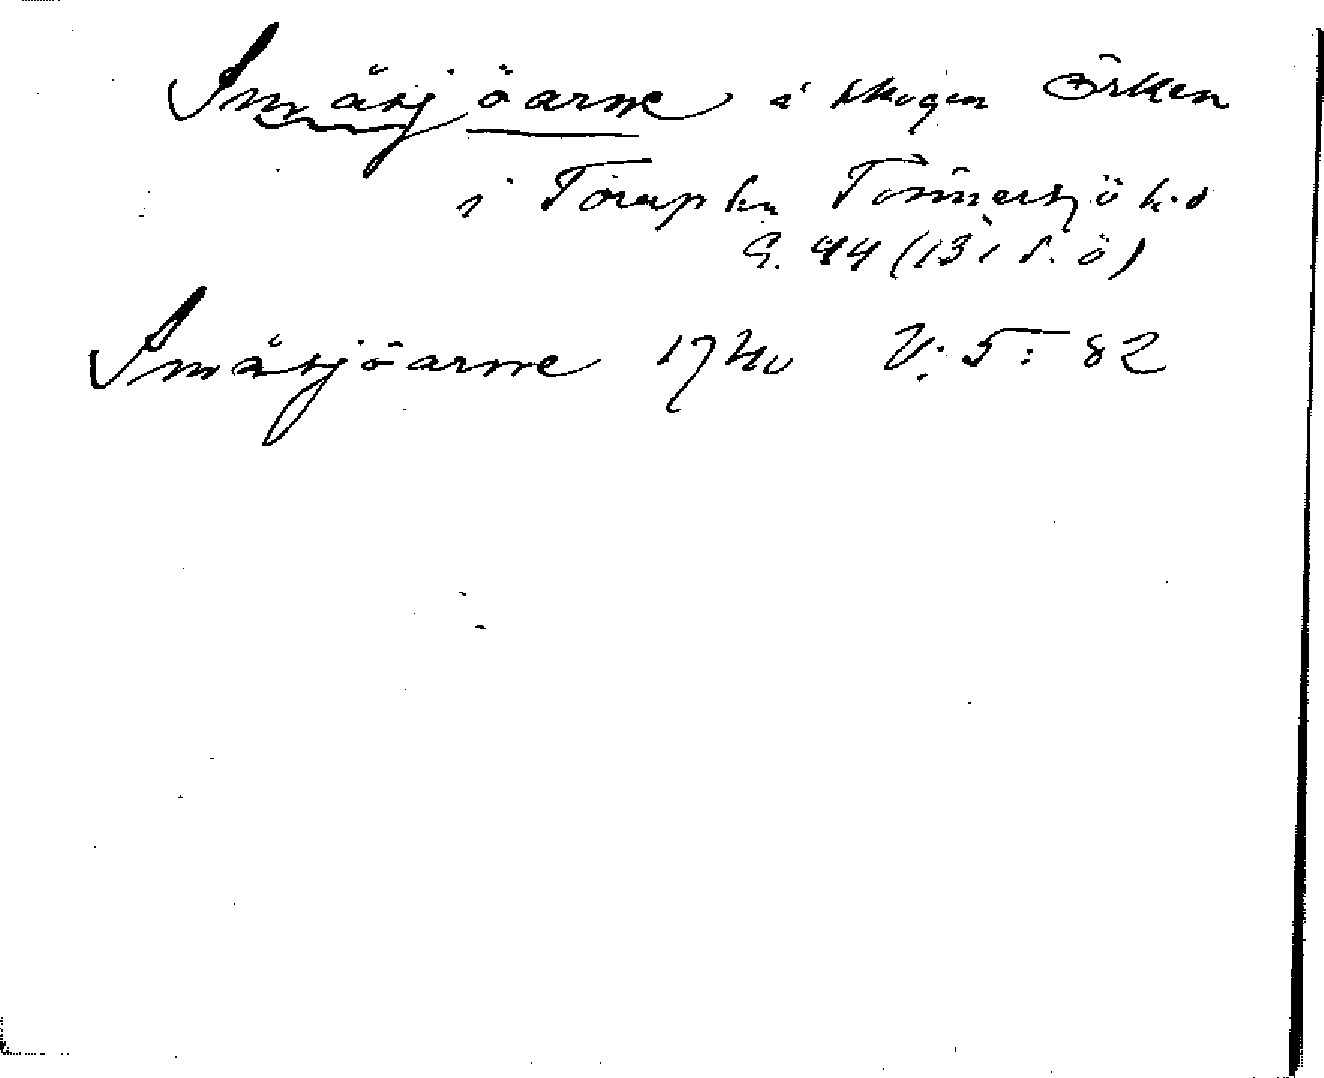 Småsjöarne å skogen Örken
i Torup sn Tönnersjö h:d
G. 44 (13 i S. ö)
Småsjöarne 1740 V: 5: 82